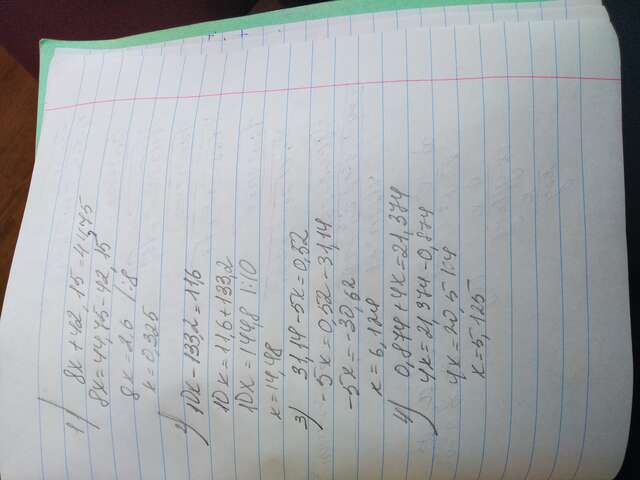 1) 8x + 42,15 = 44,75
8x = 44,75 - 42,15
8x = 2,6 |:8
x = 0,325
2) 10x - 133,2 = 11,6
10x = 11,6 + 133,2
10x = 144,8 |:10
x = 14,48
3) 31,14 - 5x = 0,52
-5x = 0,52 - 31,14
-5x = -30,62
x = 6,124
4) 0,874 + 4x = 21,374
4x = 21,374 - 0,874
4x = 20,5 |:4
x = 5,125